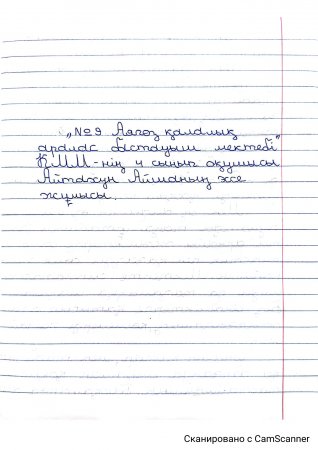 „№9 Аягөз қалалық
аралас бастауыш мектебі”
КММ-нің 4 сынып оқушысы
Айтахун Айманның эссе
жұмысы.
Сканировано с CamScanner